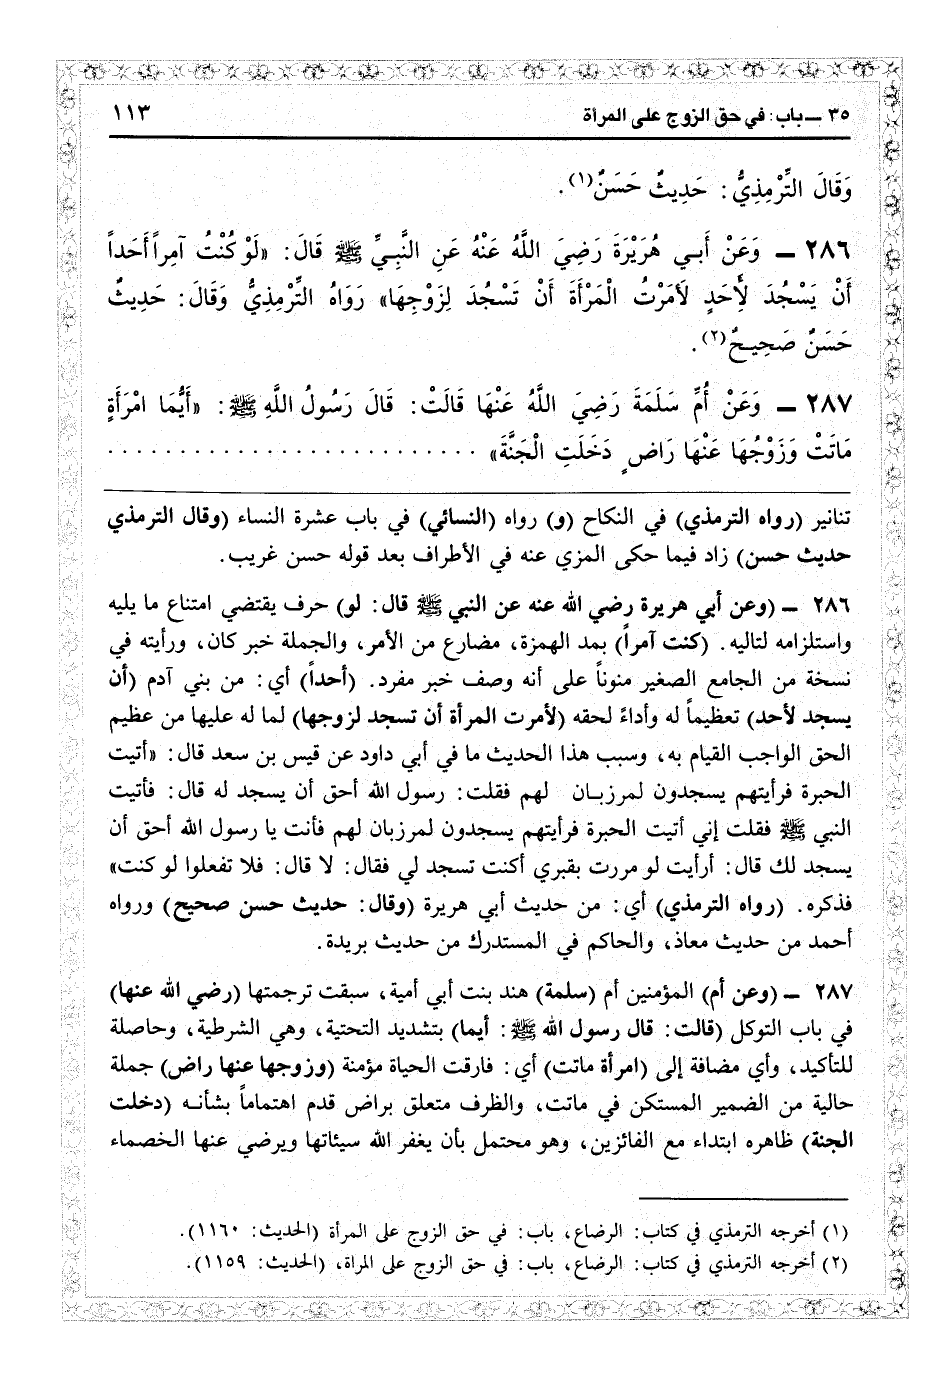 ٣٥ ــ باب: في حق الزوج على المرأة ١١٣
وَقَالَ التِّرْمِذِيُّ: حَدِيثٌ حَسَنٌ(١).
٢٨٦ ــ وَعَنْ أَبـي هُرَيْرَةَ رَضِيَ اللَّهُ عَنْهُ عَنِ النَّبِيِّ ﷺ قَالَ: «لَوْ كُنْتُ آمِراً أَحَداً
أَنْ يَسْجُدَ لِأَحَدٍ لَأَمَرْتُ الْمَرْأَةَ أَنْ تَسْجُدَ لِزَوْجِهَا» رَوَاهُ التِّرْمِذِيُّ وَقَالَ: حَدِيثٌ
حَسَنٌ صَحِيحٌ(٢).
٢٨٧ ــ وَعَنْ أُمِّ سَلَمَةَ رَضِيَ اللَّهُ عَنْهَا قَالَتْ: قَالَ رَسُولُ اللَّهِ ﷺ: «أَيُّمَا امْرَأَةٍ
مَاتَتْ وَزَوْجُهَا عَنْهَا رَاضٍ دَخَلَتِ الْجَنَّةَ» . . . . . . . . . . . . . . . . . . . . . . . . . .
تنانير (رواه الترمذي) في النكاح (و) رواه (النسائي) في باب عشرة النساء (وقال الترمذي
حديث حسن) زاد فيما حكى المزي عنه في الأطراف بعد قوله حسن غريب.
٢٨٦ ــ (وعن أبي هريرة رضي الله عنه عن النبي ﷺ قال: لو) حرف يقتضي امتناع ما يليه
واستلزامه لتاليه. (كنت آمراً) بمد الهمزة، مضارع من الأمر، والجملة خبر كان، ورأيته في
نسخة من الجامع الصغير منوناً على أنه وصف خبر مفرد. (أحداً) أي: من بني آدم (أن
يسجد لأحد) تعظيماً له وأداءً لحقه (لأمرت المرأة أن تسجد لزوجها) لما له عليها من عظيم
الحق الواجب القيام به، وسبب هذا الحديث ما في أبي داود عن قيس بن سعد قال: «أتيت
الحيرة فرأيتهم يسجدون لمرزبـان لهم فقلت: رسول الله أحق أن يسجد له قال: فأتيت
النبي ﷺ فقلت إني أتيت الحيرة فرأيتهم يسجدون لمرزبان لهم فأنت يا رسول الله أحق أن
يسجد لك قال: أرأيت لو مررت بقبري أكنت تسجد لي فقال: لا قال: فلا تفعلوا لو كنت»
فذكره. (رواه الترمذي) أي: من حديث أبي هريرة (وقال: حديث حسن صحيح) ورواه
أحمد من حديث معاذ، والحاكم في المستدرك من حديث بريدة.
٢٨٧ ــ (وعن أم) المؤمنين أم (سلمة) هند بنت أبي أمية، سبقت ترجمتها (رضي الله عنها)
في باب التوكل (قالت: قال رسول الله ﷺ: أيما) بتشديد التحتية، وهي الشرطية، وحاصلة
للتأكيد، وأي مضافة إلى (امرأة ماتت) أي: فارقت الحياة مؤمنة (وزوجها عنها راض) جملة
حالية من الضمير المستكن في ماتت، والظرف متعلق براض قدم اهتماماً بشأنـه (دخلت
الجنة) ظاهره ابتداء مع الفائزين، وهو محتمل بأن يغفر الله سيئاتها ويرضي عنها الخصماء
(١) أخرجه الترمذي في كتاب: الرضاع، باب: في حق الزوج على المرأة (الحديث: ١١٦٠).
(٢) أخرجه الترمذي في كتاب: الرضاع، باب: في حق الزوج على المرأة، (الحديث: ١١٥٩).